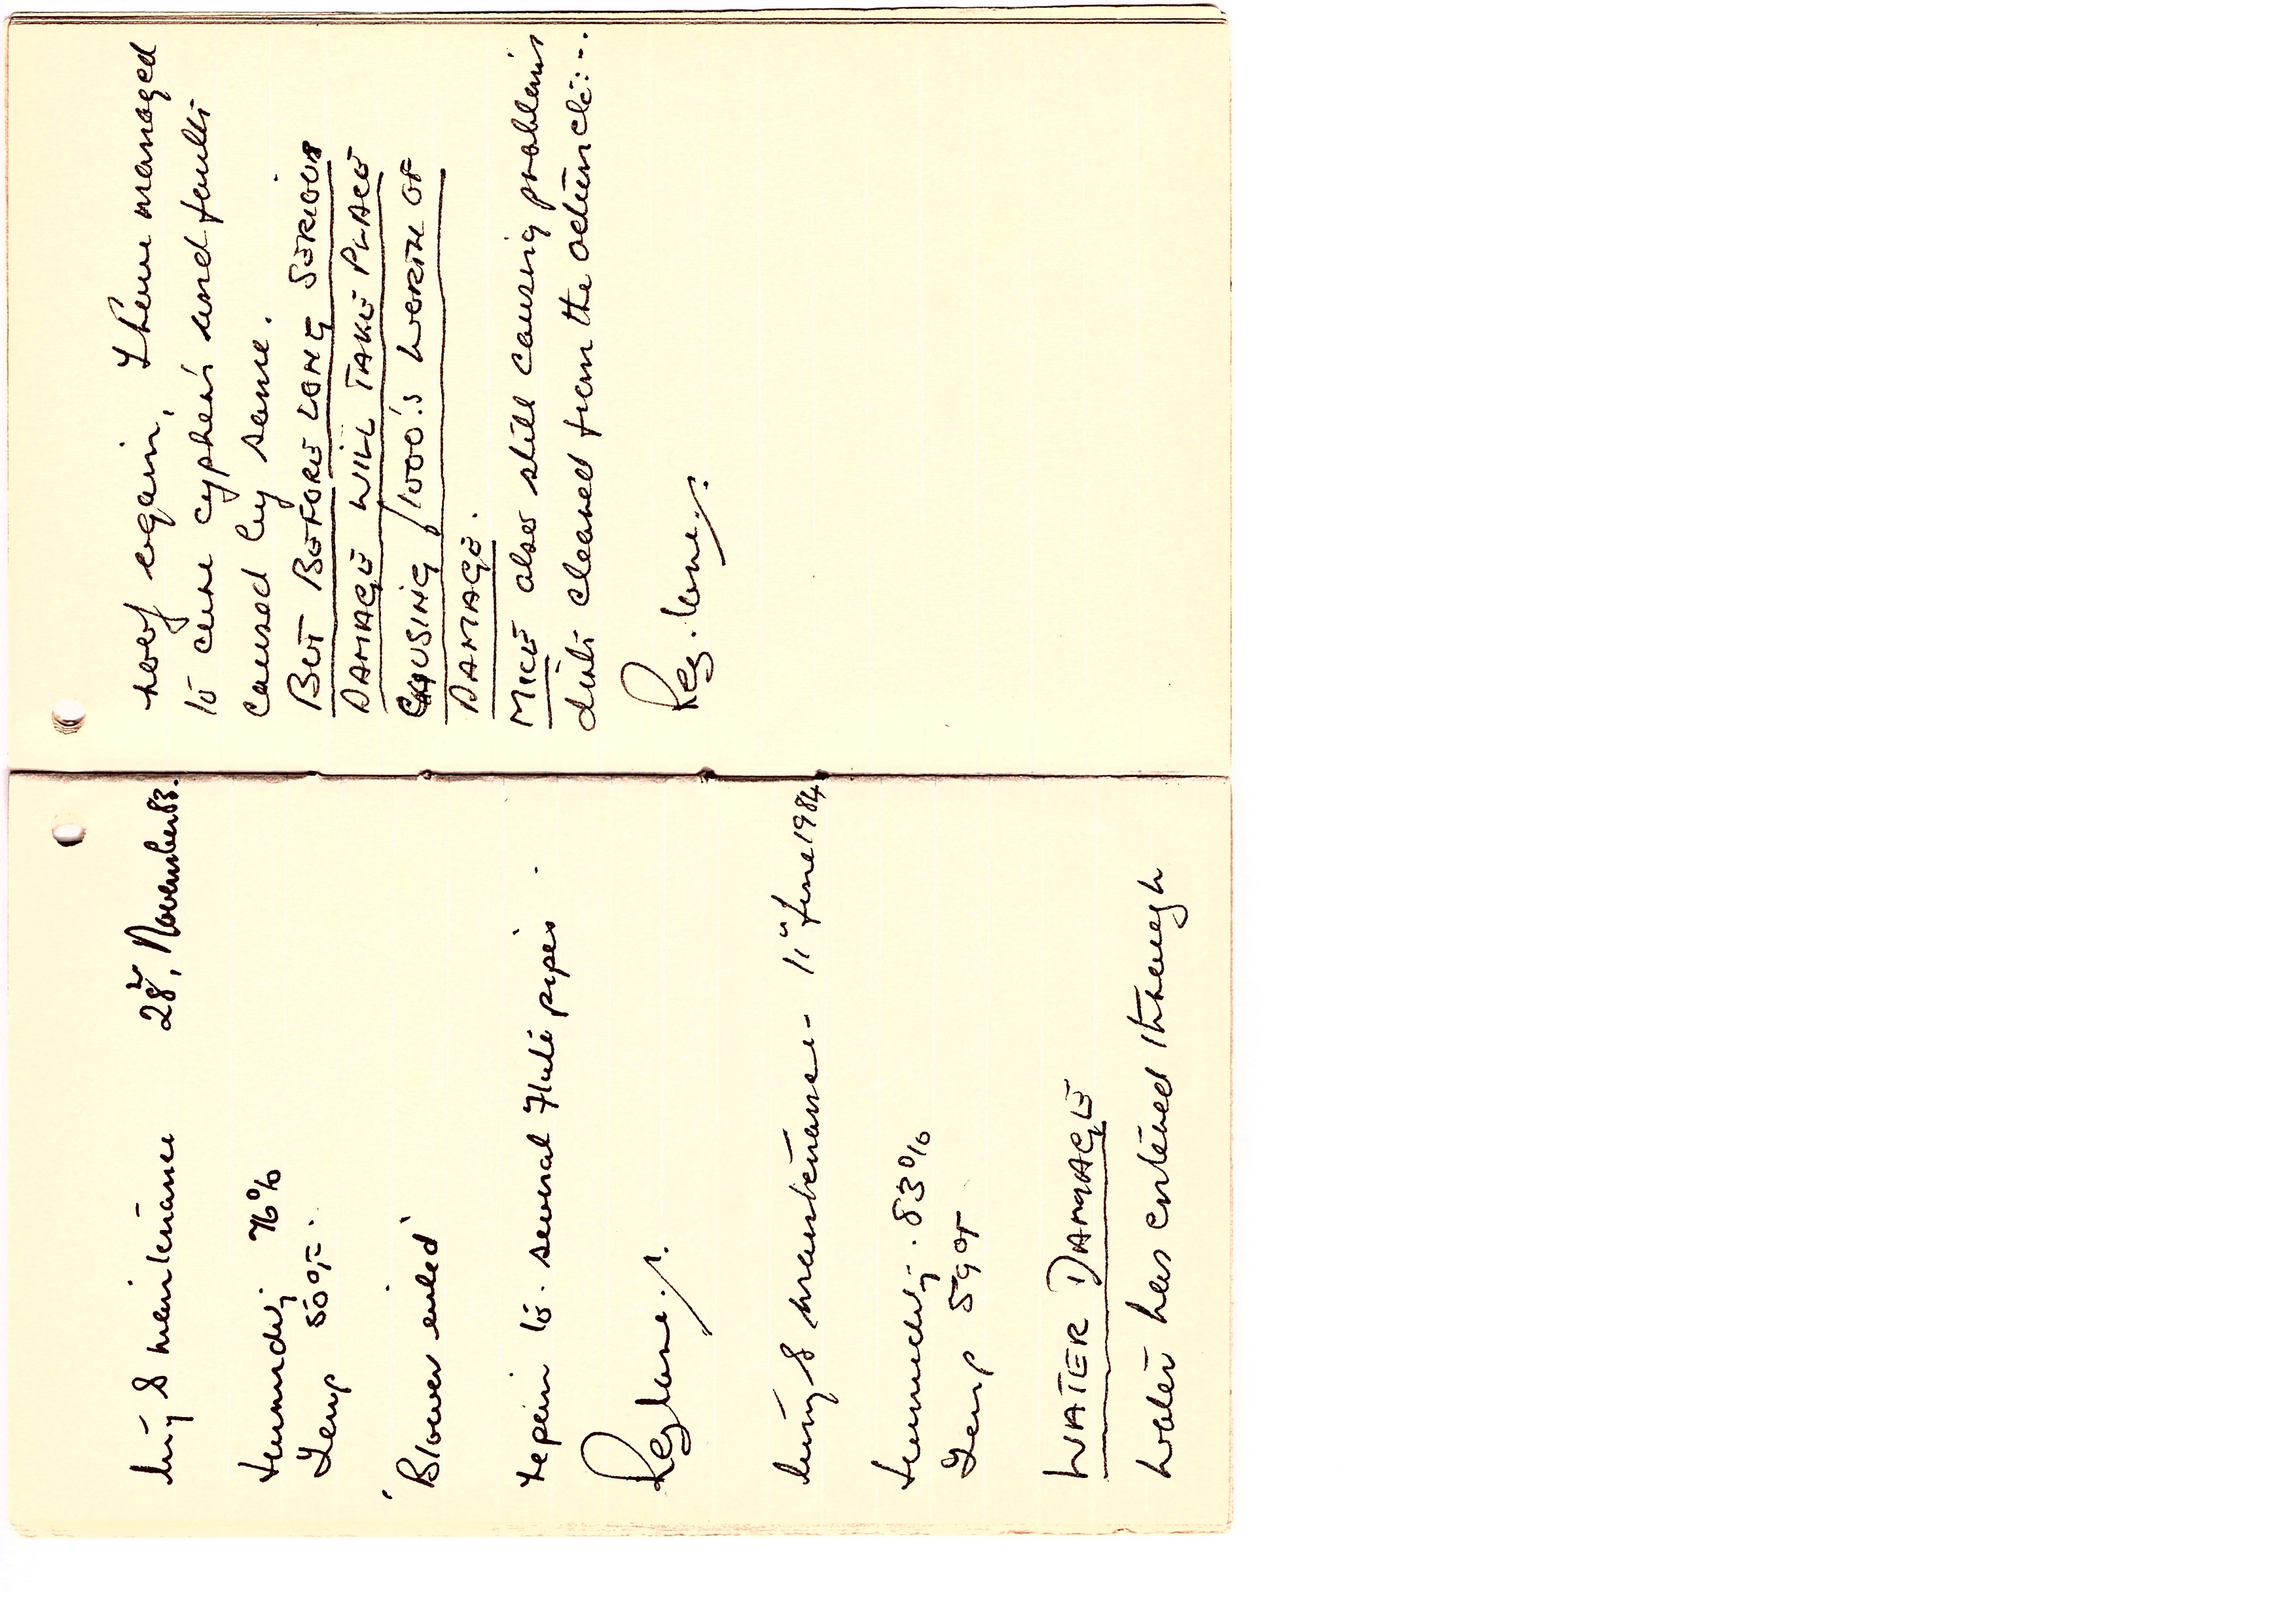 Tuning & maintenance 28th, November 83.
Humidity 76%
Temp 50°F.
'Blower oiled'
repair to. several Flute pipes
Reg Lane.
Tuning & maintenance - 11th June 1984
Humidity. 83%
Temp 59°F
WATER DAMAGE
Water has entered through
roof again, I have managed
to cure cyphers and faults
caused by same.
BUT BEFORE LONG SERIOUS
DAMAGE WILL TAKE PLACE
CAUSING £1000's WORTH OF
DAMAGE.
MICE also still causing problems
dirt cleaned from the action etc:-.
Reg. Lane.